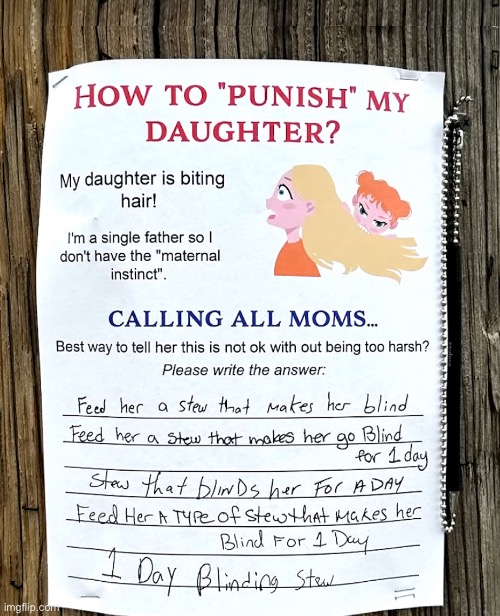 HOW TO "PUNISH" MY
DAUGHTER?
My daughter is biting
hair!
I'm a single father so I
don't have the "maternal
instinct".
CALLING ALL MOMS...
Best way to tell her this is not ok with out being too harsh?
Please write the answer:
Feed her a stew that makes her blind
Feed her a stew that makes her go Blind
for 1 day
Stew that blinds her for A DAY
Feed Her A Type of stew that makes her
Blind For 1 Day
1 Day Blinding Stew
imgflip.com